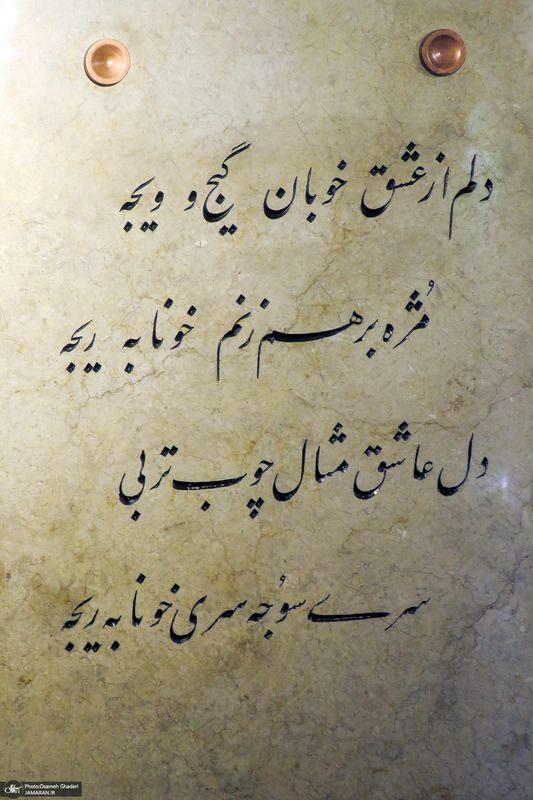 دلم از عشق خوبان گیج و ویجه
مُژه برهم زنم خونابه ریجه
دل عاشق مثال چوب تر بی
سرے سوُجه سری خونابه ریجه
Photo:Osameh Ghaderi
JAMARAN.IR